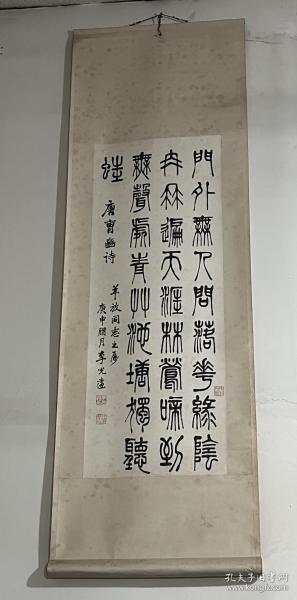 門外無人問落華綠陰
冉冉遍天涯林鶯啼到
無聲處青艸池塘獨聽
蛙
唐曹豳诗
羊放同志之属
庚申腊月李光遠
孔夫子旧书网